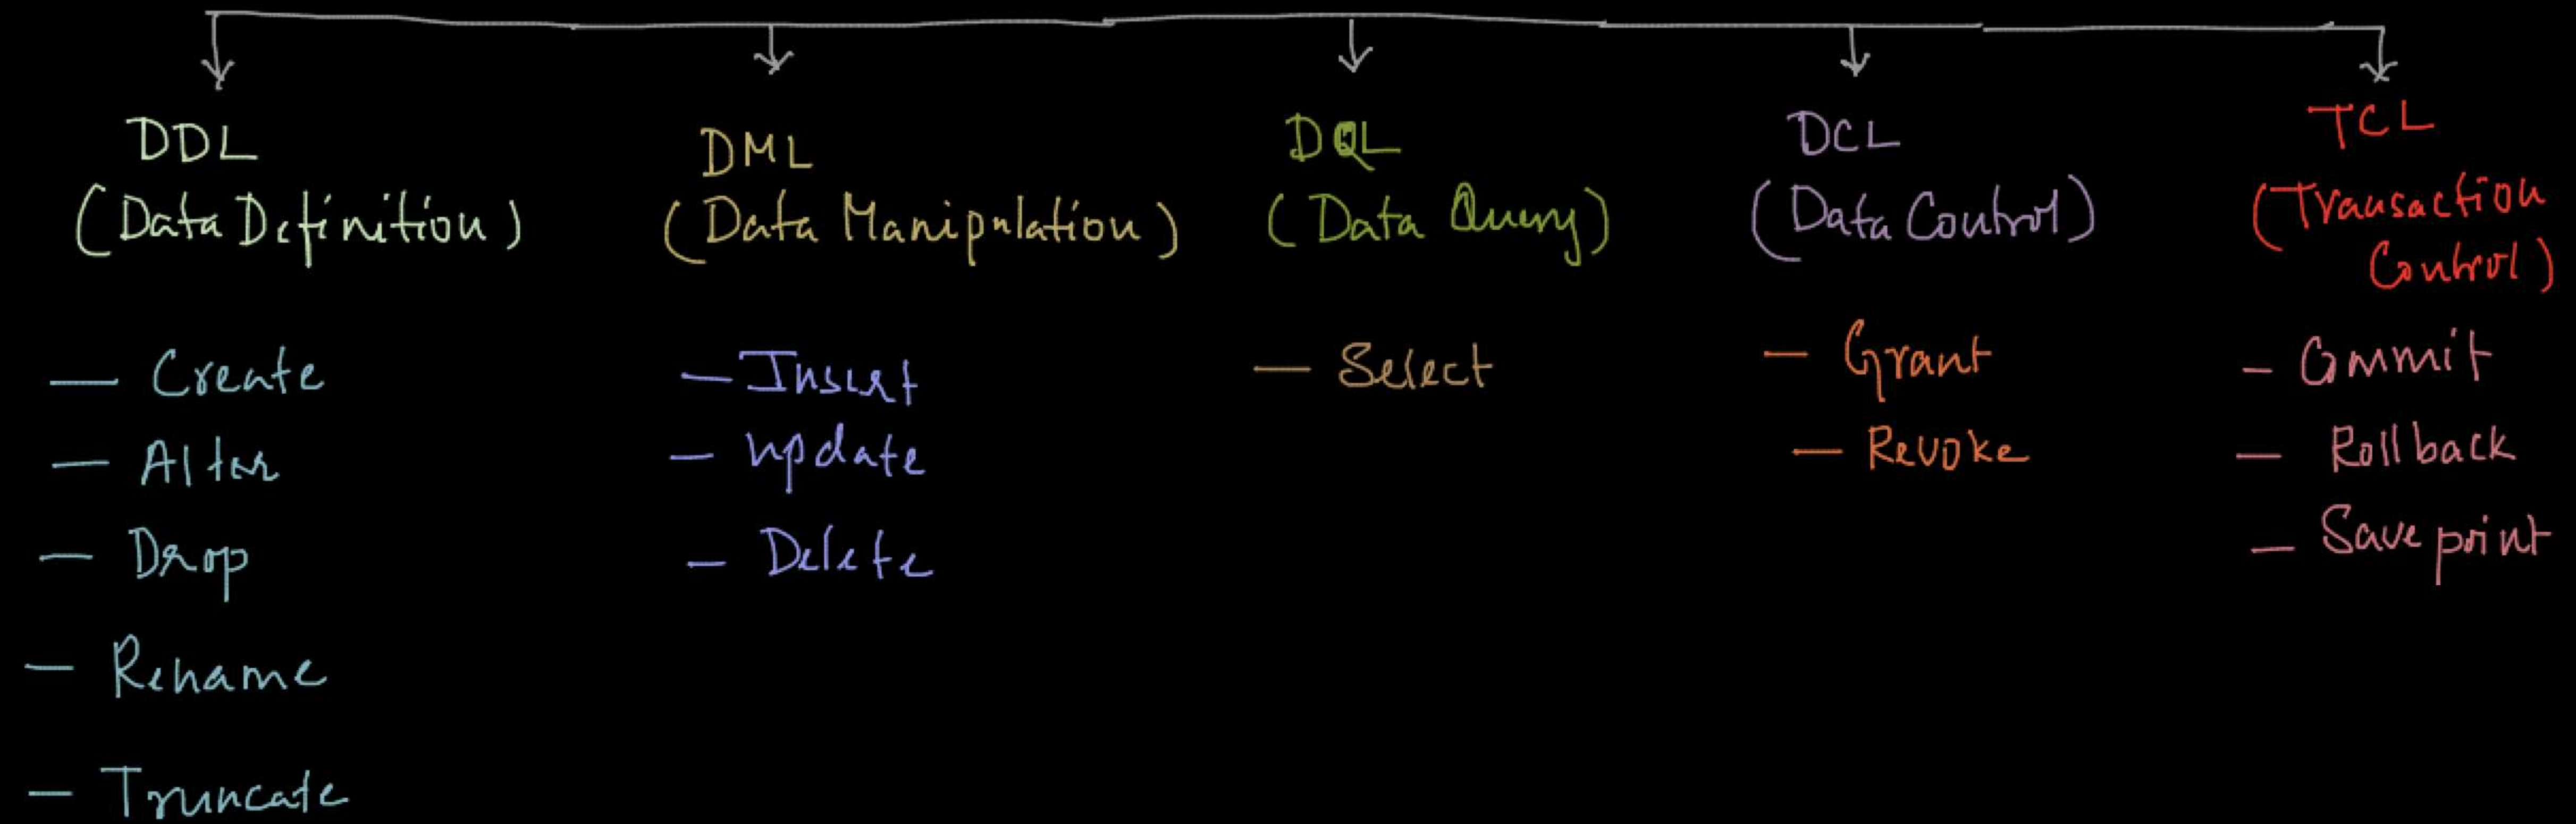 DDL
(Data Definition)
— Create
— Alter
— Drop
— Rename
— Truncate
DML
(Data Manipulation)
— Insert
— update
— Delete
DQL
(Data Query)
— Select
DCL
(Data Control)
— Grant
— Revoke
TCL
(Transaction
Control)
— Commit
— Rollback
— Savepoint